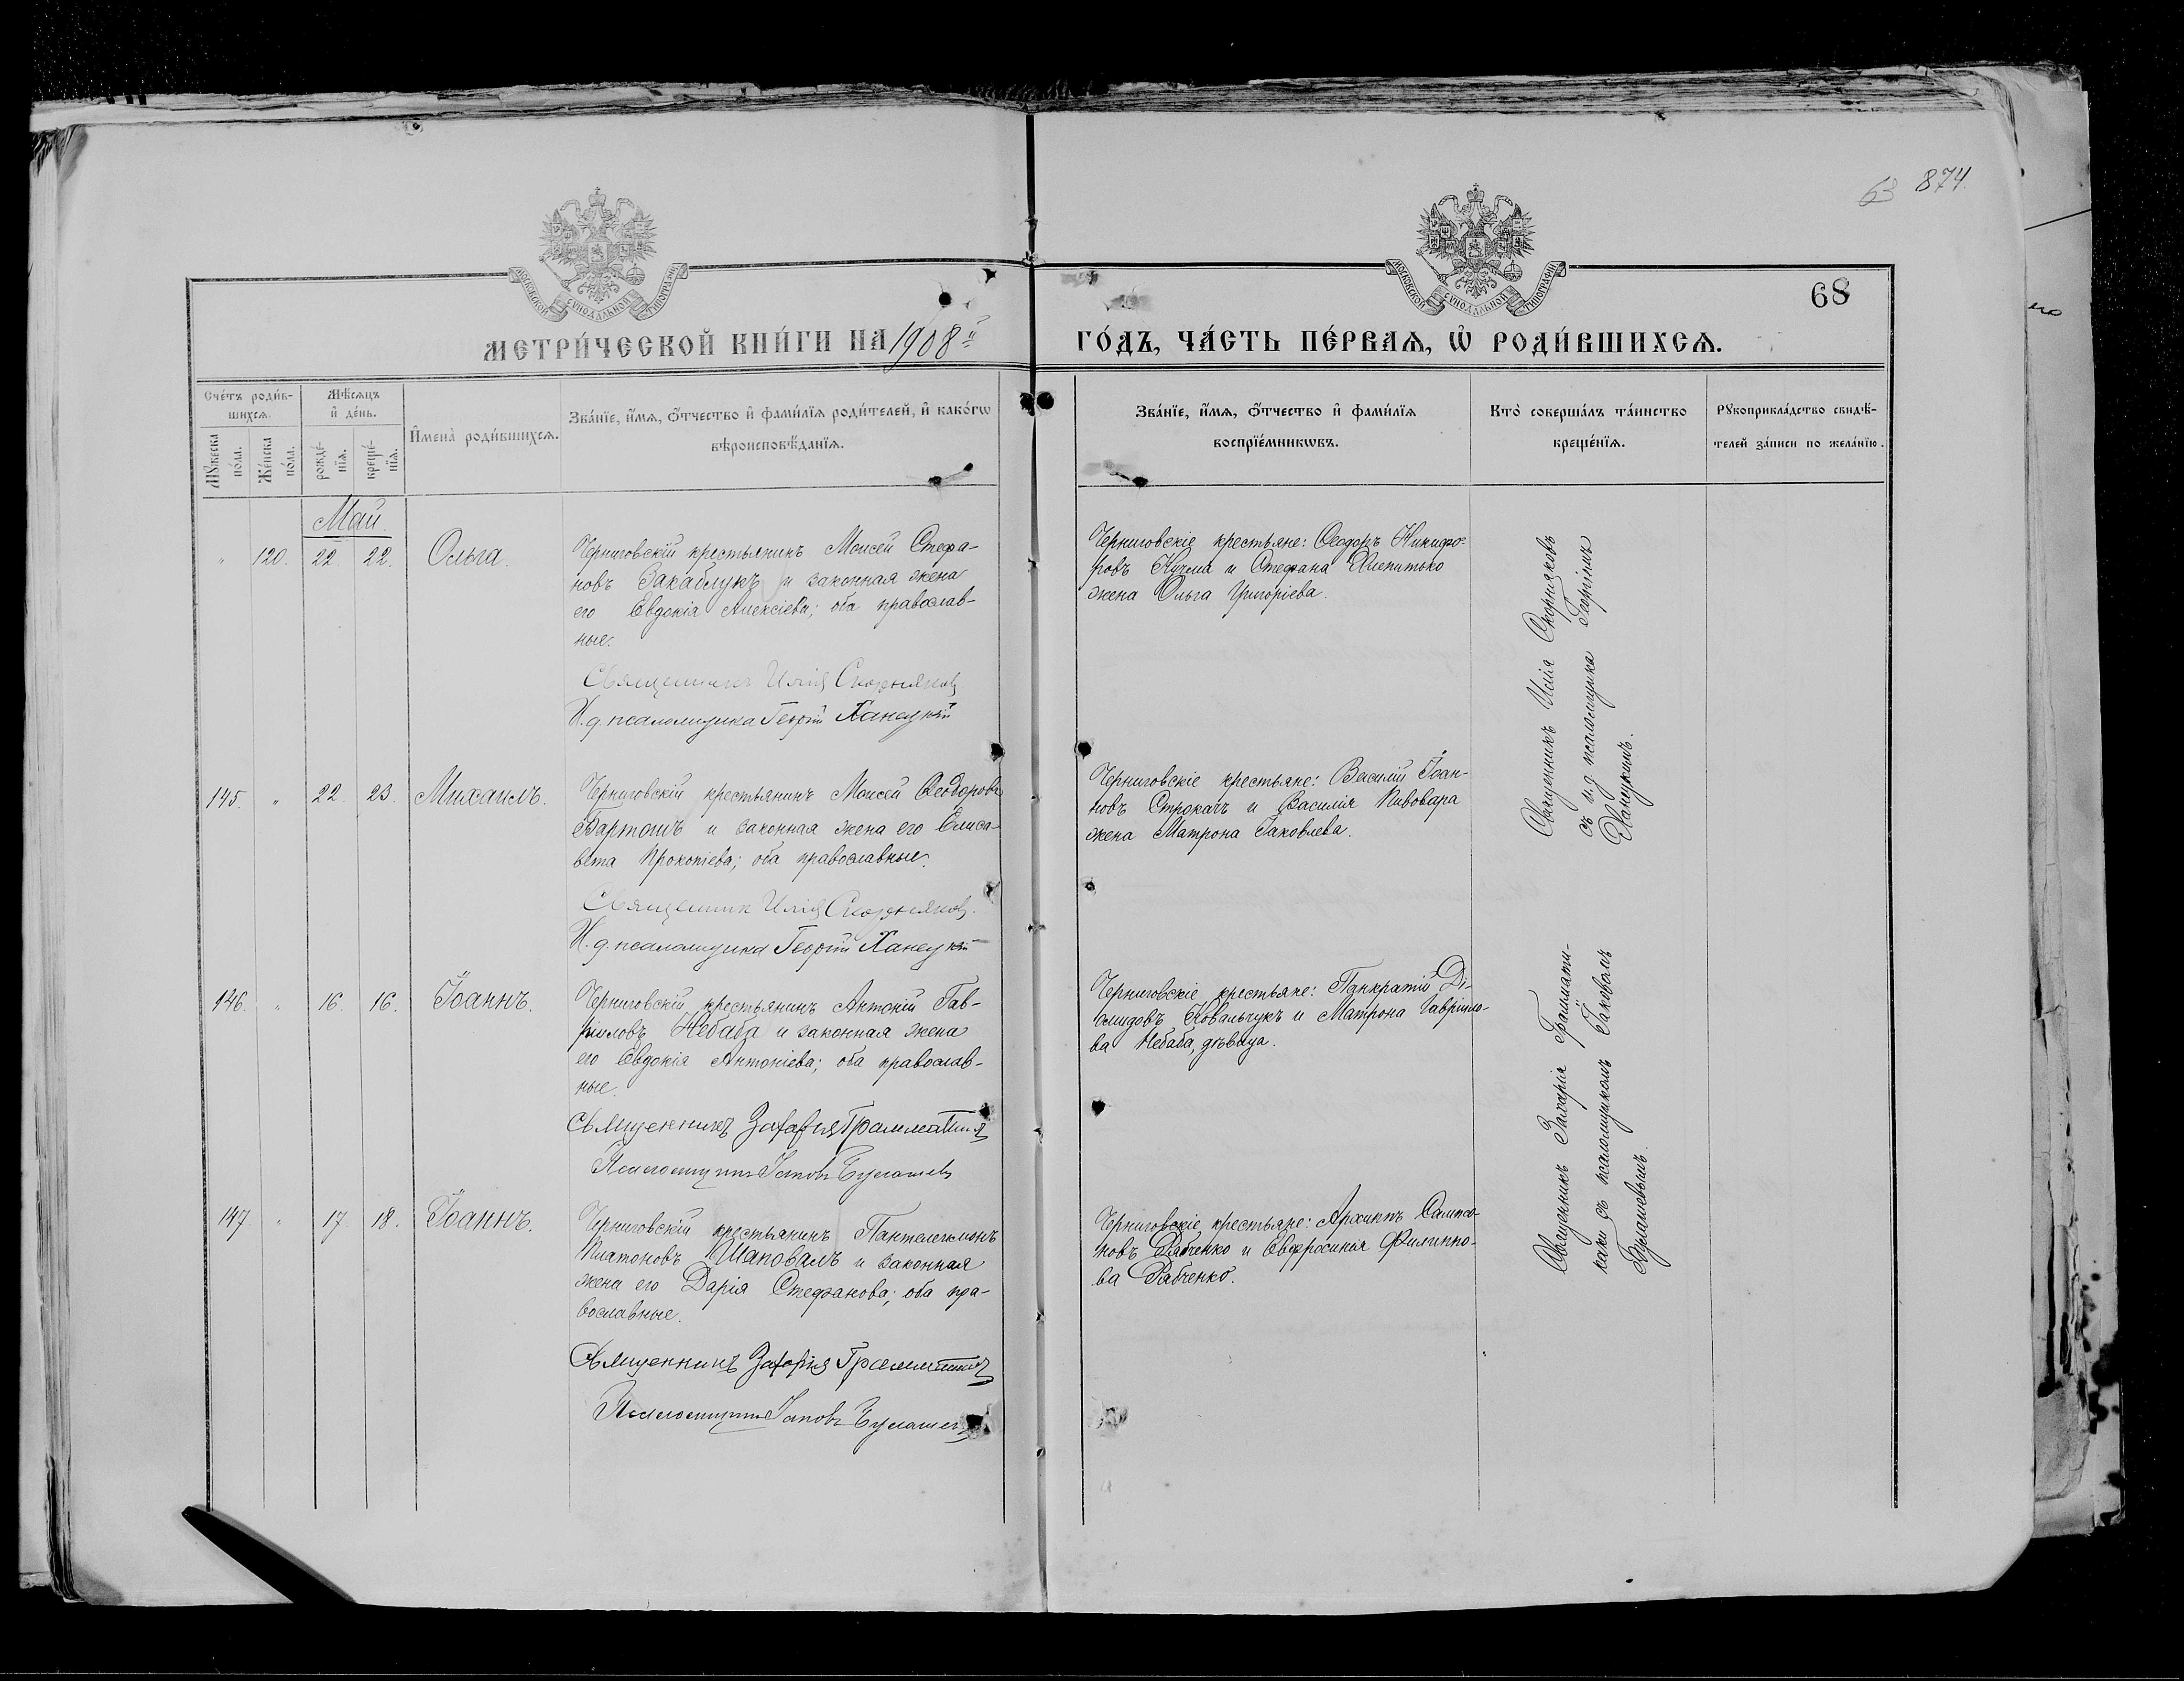 63 874.
МОСКОВСКОЙ СѴНОДАЛЬНОЙ ТИПОГРАФІИ
МОСКОВСКОЙ СѴНОДАЛЬНОЙ ТИПОГРАФІИ
68
МЕТРИ́ЧЕСКОЙ КНИ́ГИ НА 1908й ГО́ДЪ, ЧА́СТЬ ПЕ́РВАѦ, Ѡ҆ РОДИ́ВШИХСѦ.
Сче́тъ роди́в-
шихсѧ.
Мꙋ́жеска по́ла.
Же́нска по́ла.
Мѣ́сѧцъ
и҆ де́нь.
рожде́-
нїѧ.
креще́-
нїѧ.
И҆мена̀ роди́вшихсѧ.
Зва́нїе, и҆́мѧ, ѻ҆́тчество и҆ фами́лїѧ роди́телей, и҆ како́гѡ
вѣроисповѣ́данїѧ.
Зва́нїе, и҆́мѧ, ѻ҆́тчество и҆ фами́лїѧ
воспрїе́мникѡвъ.
Кто̀ соверша́лъ та́инство
креще́нїѧ.
Рꙋкоприкла́дство свидѣ́-
телей за́писи по жела́нїю.
Май.
" 120. 22. 22. Ольга.
Черниговскій крестьянинъ Моисей Стефа-
новъ Закаблукъ и законная жена
его Евдокія Алексіева; оба православ-
ные.
Священникъ Илія Скорняковъ
И. д. псаломщика Георгій Ханецкій
Черниговскіе крестьяне: Ѳеодоръ Никифо-
ровъ Кучма и Стефана Хлепитько
жена Ольга Григоріева.
Священникъ Илія Скорняковъ
съ и. д. псаломщика Георгіемъ
Ханецкимъ.
145. " 22. 23. Михаилъ.
Черниговскій крестьянинъ Моисей Ѳеодоровъ
Вартошъ и законная жена его Елиса-
вета Прокопіева; оба православные.
Священникъ Илія Скорняковъ.
И. д. псаломщика Георгій Ханецкій
Черниговскіе крестьяне: Василій Іоан-
новъ Строкачъ и Василія Пивовара
жена Матрона Іаковлева.
146. " 16. 16. Іоаннъ.
Черниговскій крестьянинъ Антоній Гав-
ріиловъ Небаба и законная жена
его Евдокія Антоніева; оба православ-
ные.
Священникъ Захарія Грамматикаки
Псаломщикъ Іаковъ Булашевъ
Черниговскіе крестьяне: Панкратій Ді-
омидовъ Ковальчукъ и Матрона Гавріило-
ва Небаба, дѣвица.
Священникъ Захарія Граммати-
каки съ псаломщикомъ Іаковомъ
Булашевымъ.
147 " 17. 18. Іоаннъ.
Черниговскій крестьянинъ Пантелеимонъ
Платоновъ Шаповалъ и законная
жена его Дарія Стефанова; оба пра-
вославные.
Священникъ Захарія Грамматикаки
Псаломщикъ Іаковъ Булашевъ
Черниговскіе крестьяне: Архиппъ Сампсо-
новъ Рябченко и Евфросинія Филиппо-
ва Рябченко.